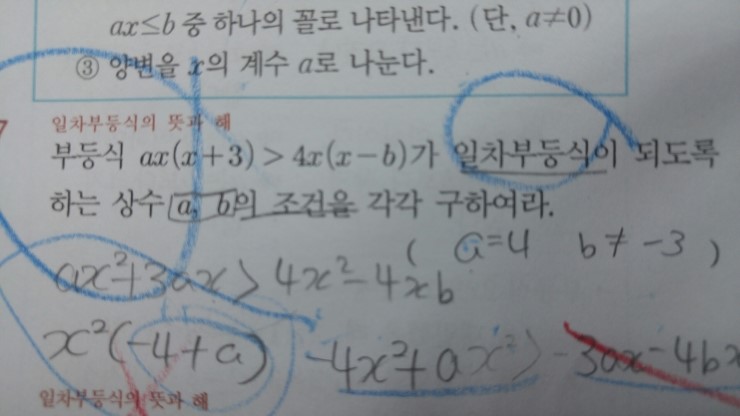 ax≤b 중 하나의 꼴로 나타낸다. (단, a≠0)
③ 양변을 x의 계수 a로 나눈다.
7
일차부등식의 뜻과 해
부등식 ax(x+3) > 4x(x-b)가 일차부등식이 되도록
하는 상수 a, b의 조건을 각각 구하여라.
( a=4 b≠-3 )
ax²+3ax > 4x²-4xb
x²(-4+a) -4x²+ax² > -3ax-4bx
일차부등식의 뜻과 해